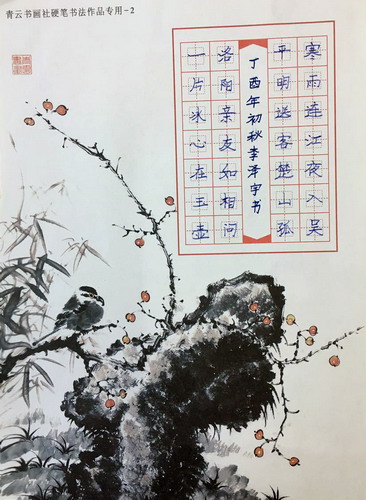 青云书画社硬笔书法作品专用-2
寒雨连江夜入吴
平明送客楚山孤
丁酉年初秋李泽宇书
洛阳亲友如相问
一片冰心在玉壶